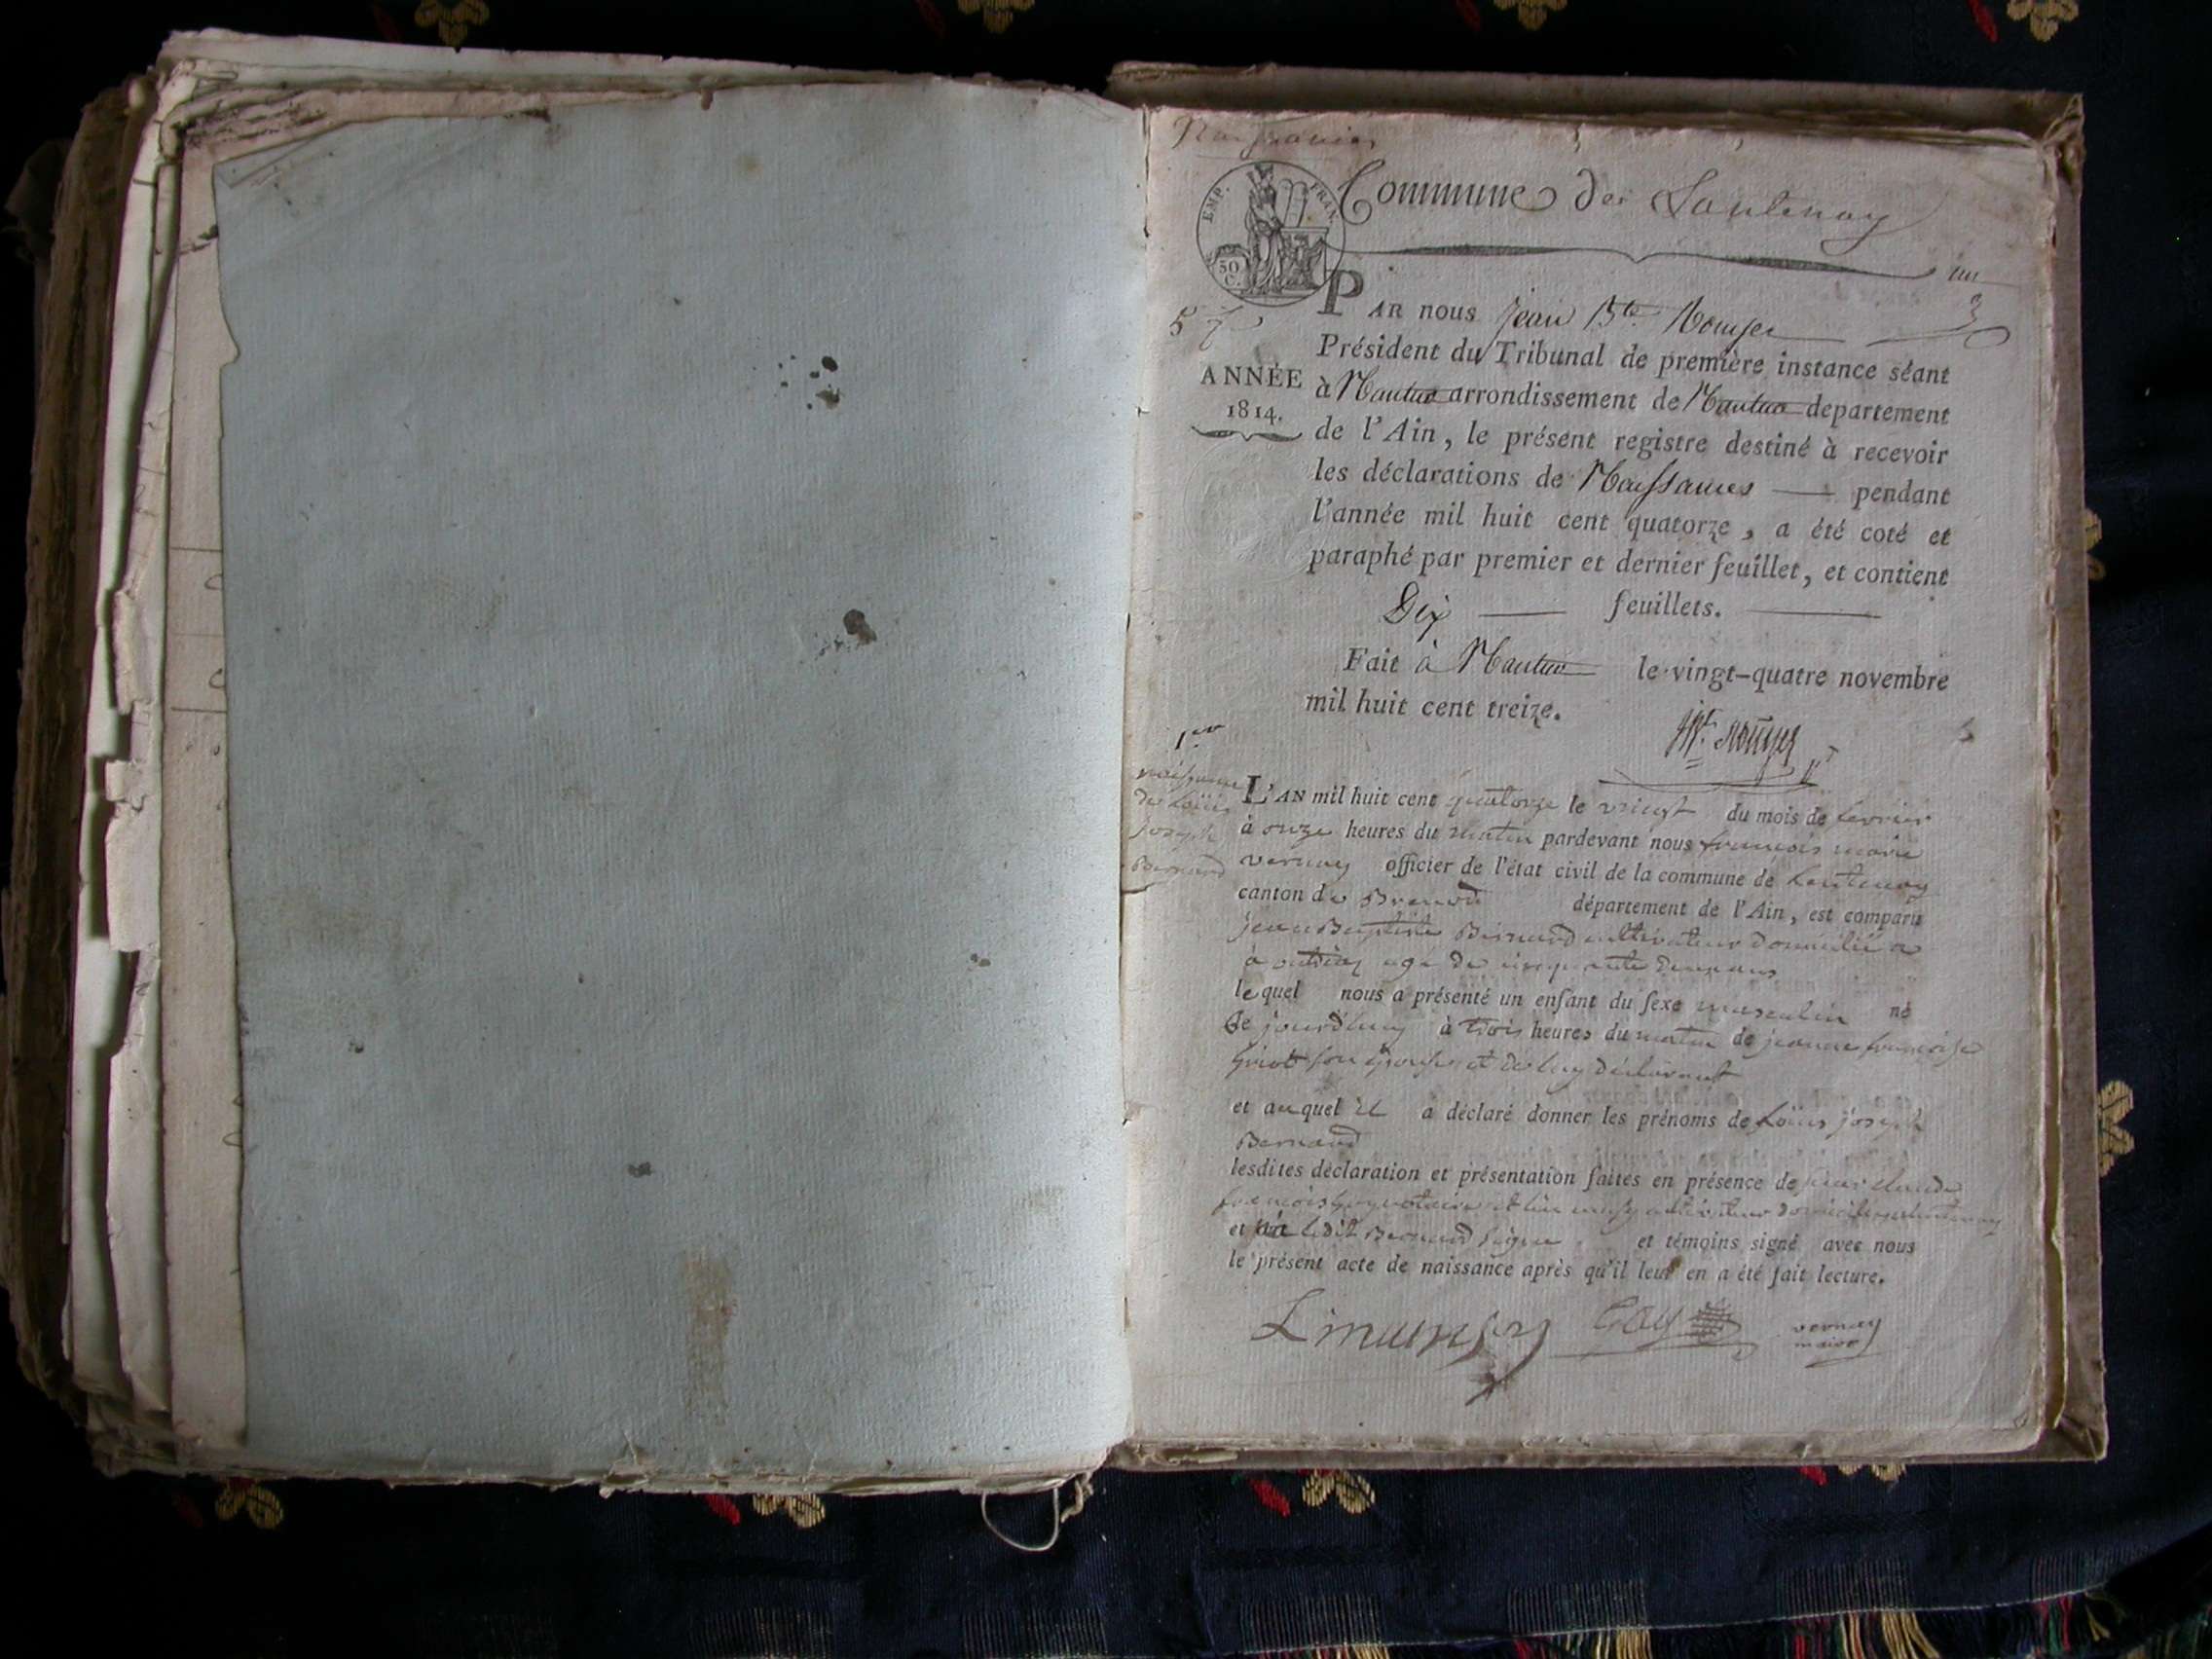 Commune de Lantenay
EMP. FRAN.
50 C.
un
PAR nous Jean Bte Rouyer
57
3
Président du Tribunal de première instance séant
ANNÉE
1814.
à Nantua arrondissement de Nantua departement
de l'Ain, le présent registre destiné à recevoir
les déclarations de Naissances pendant
l'année mil huit cent quatorze, a été coté et
paraphé par premier et dernier feuillet, et contient
Dix feuillets.
Fait à Nantua le vingt-quatre novembre
mil huit cent treize.
1er
naissance
de Loüis
joseph
Bernard
L'AN mil huit cent quatorze le vingt du mois de fevrier
à onze heures du matin pardevant nous françois marie
vernay officier de l'état civil de la commune de Lantenay
canton de Brenod département de l'Ain, est comparu
jean Baptiste Bernard cultivateur domicilié
à outriaz age de cinquante deux ans
lequel nous a présenté un enfant du sexe masculin né
Ce jourd'huy à trois heures du matin de jeanne françoise
son epouse et de luy declarant
et auquel il a déclaré donner les prénoms de Loüis joseph
Bernard
lesdites déclaration et présentation faites en présence de claude
françois notaire et cultivateur Lantenay
et ledit Bernard signé et témoins signé avec nous
le présent acte de naissance après qu'il leur en a été fait lecture.
Goy vernay
maire